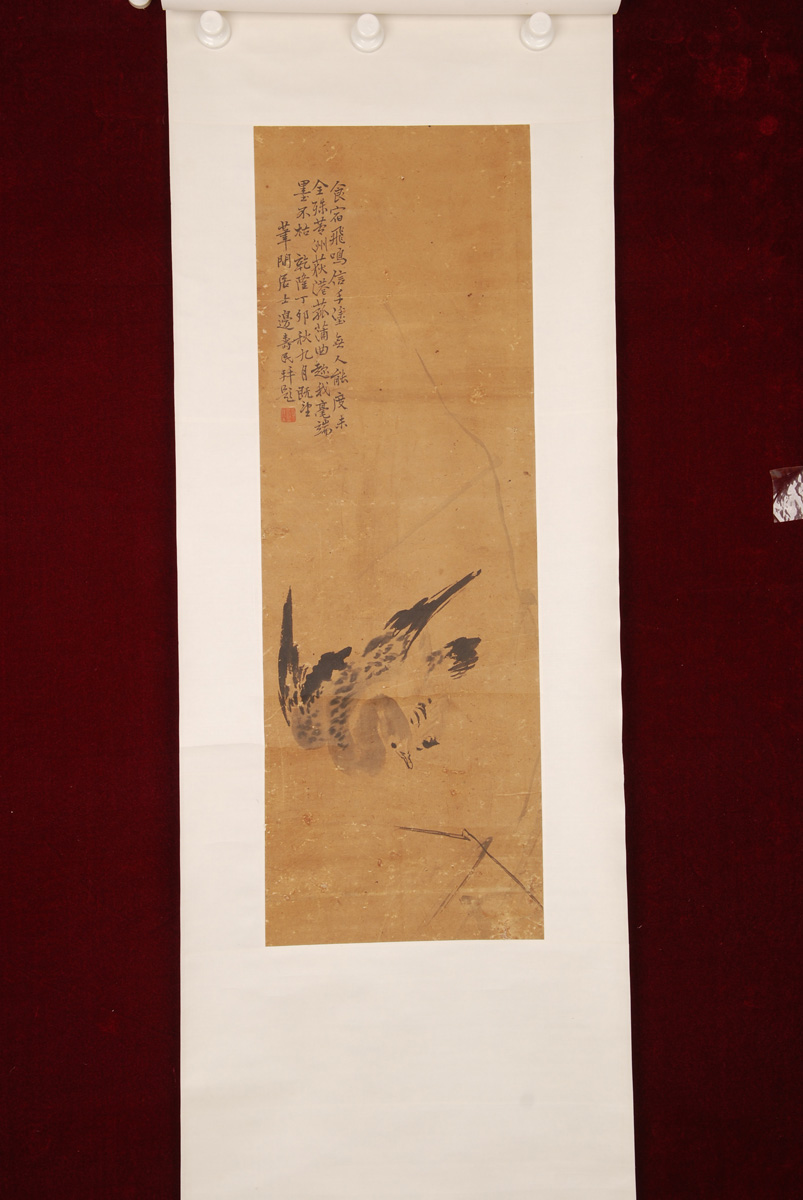 食宿飛鳴信手塗無人能度未
全殊芦洲荻港菰蒲曲趂我毫端
墨不枯 乾隆丁卯秋九月既望
葦間居士邊壽民并題